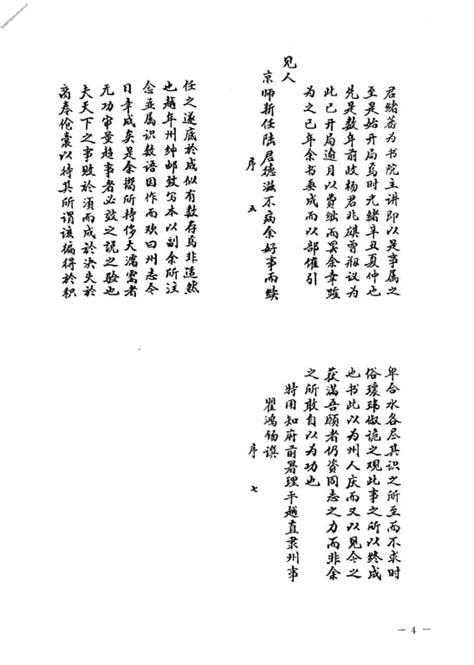 君緒蕃为书院主讲即以是事属之
至是始开局焉时光绪辛丑夏仲也
先是数年前故杨君兆麒曾拟议为
此已开局逾月以费绌而罢余幸踵
为之已年余书垂成而以部催引
见人
京师新任陆君德滋不病余好事而续
序 五
任之遂底於成似有数存焉非适然
也越年州绅邮致写本以副余所注
念並属识数语因作而欢曰州志今
日幸成矣是余嚮所持侈大濡需者
无功审量趋事者必效之说之验也
夫天下之事败於须而成於决失於
高奉伦囊以特其所谓该编得於积
卑合水各尽其识之所至而不求时
俗瓌玮俶诡之观此事之所以终成
也书此以为州人庆而又以见今之
获满吾愿者仍资同志之力而非余
之所敢自以为功也
特用知府前署理平越直隶州事
瞿鸿锡谟
序 七
— 4 —